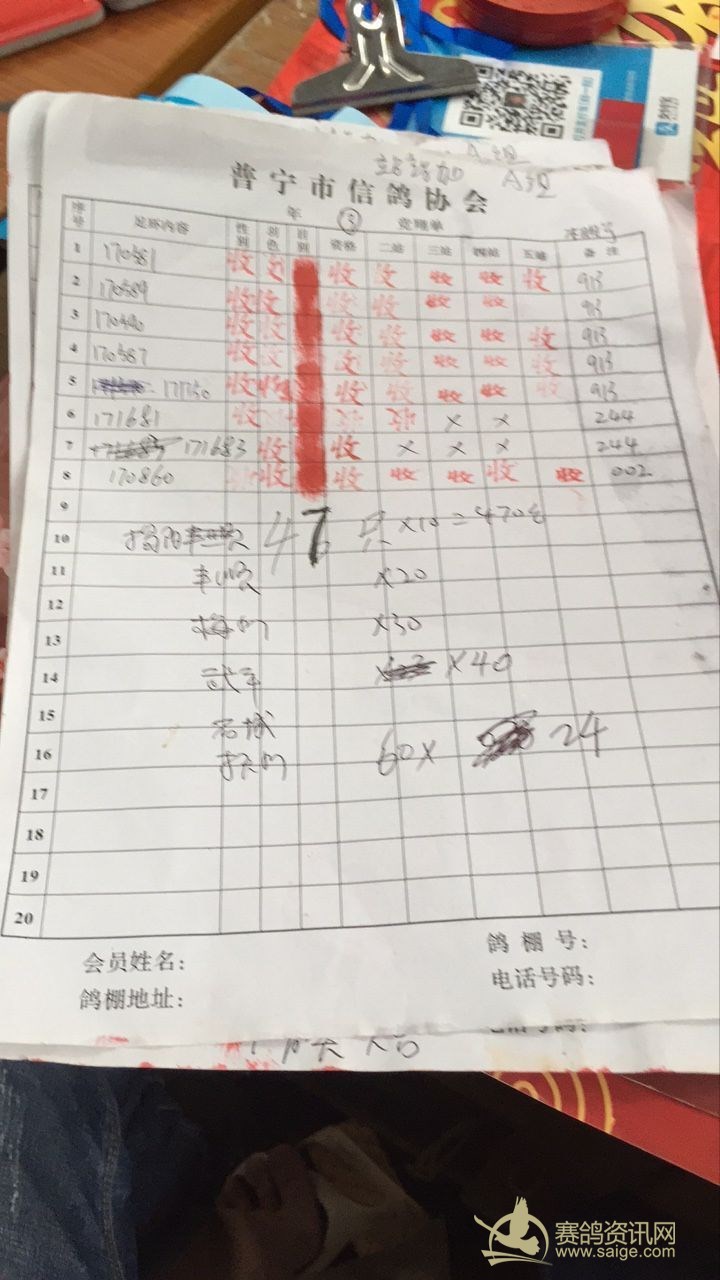 A组
站站加 A组
普宁市信鸽协会
年 ⑤ 竞翔单
序号 足环内容 性别 羽色 眼别 资格 二站 三站 四站 五站 备注
1 170581 收 收 收 收 收 收 收 913
2 170589 收 收 收 收 收 收 913
3 170590 收 收 收 收 收 收 收 913
4 170587 收 收 收 收 收 收 913
5 171750 收 收 收 收 收 收 收 913
6 171681 收 × × 244
7 171683 收 收 × × × 244
8 170860 收 收 收 收 收 收 收 002
9
10 揭阳 47只 ×10=470
11 丰顺 ×20
12
13 梅州 ×30
14 武平 ×40
15 石城
16 抚州 60× 24
17
18
19
20
会员姓名： 鸽棚号：
鸽棚地址： 电话号码：
赛鸽资讯网
www.saige.com